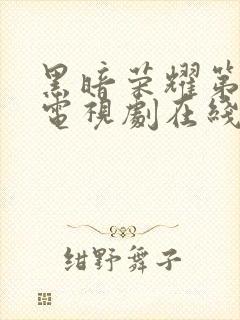 黑暗荣耀第
電視劇在綫
绀野舞子